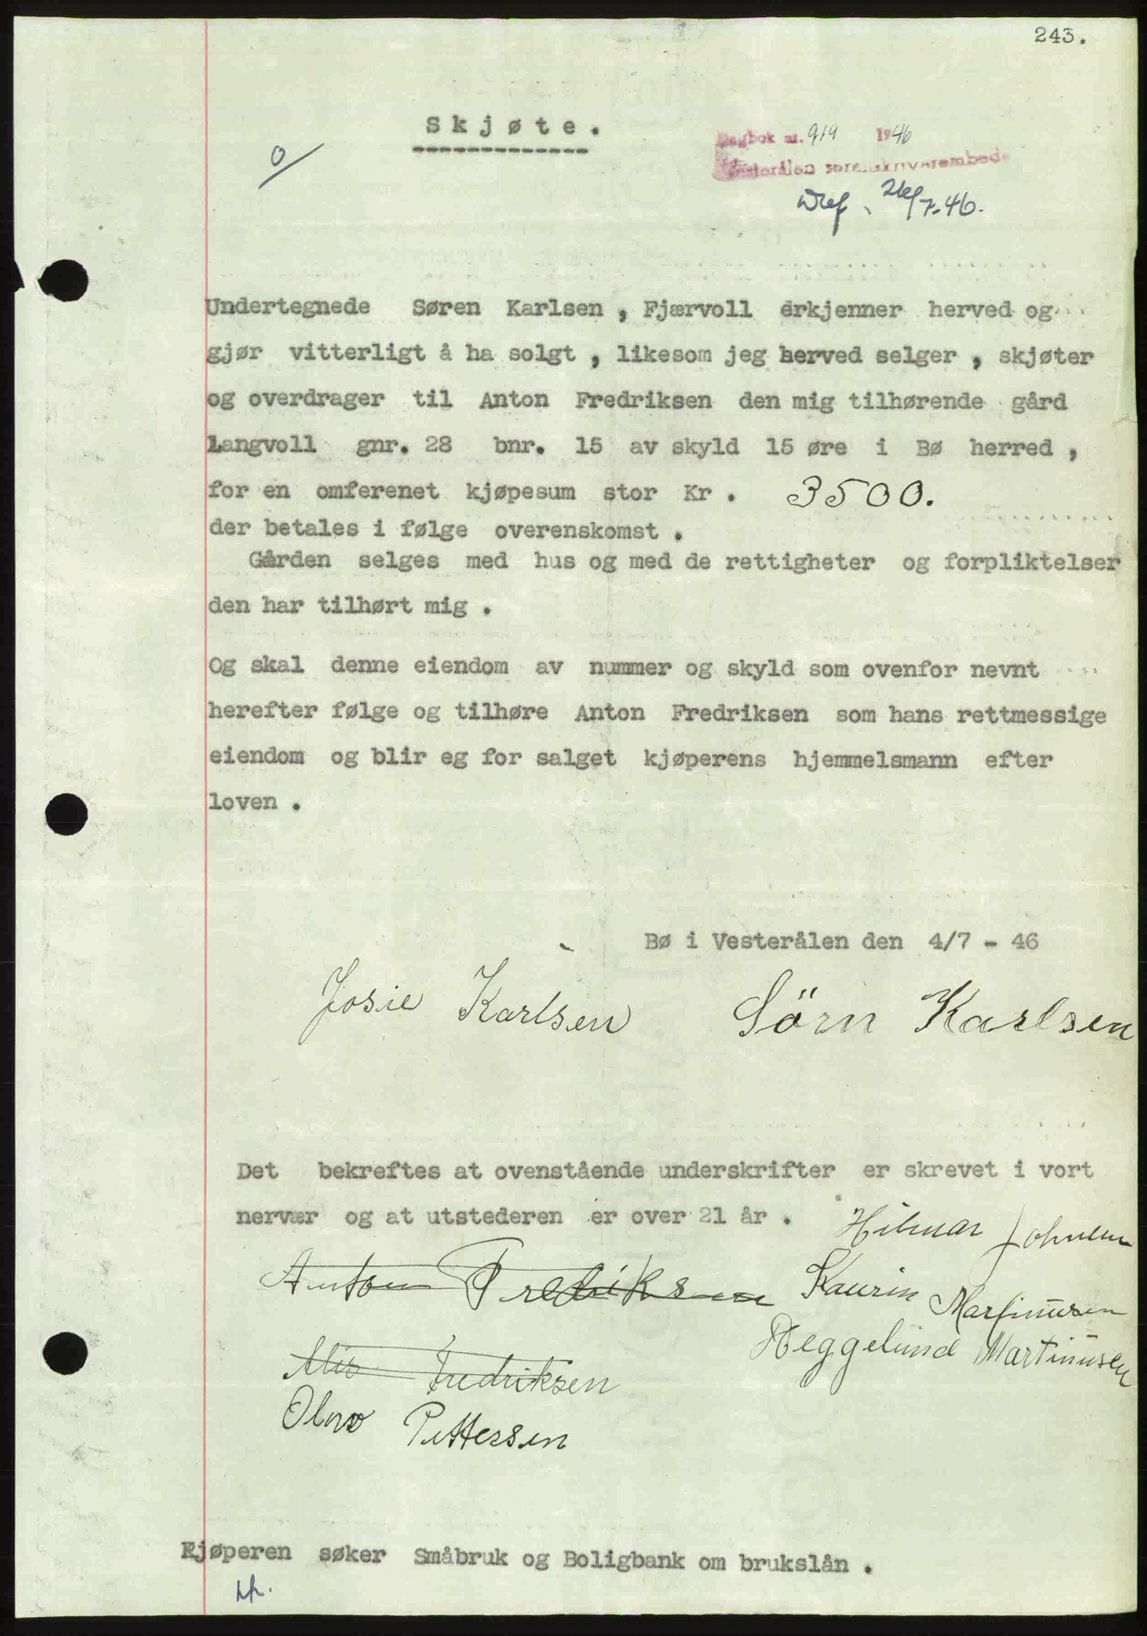 243.
Skjøte.
Dagbok nr. 919 1946
Vesterålen sorenskriverembede
26/7-46.
Undertegnede Søren Karlsen , Fjærvoll erkjenner herved og
gjør vitterligt å ha solgt , likesom jeg herved selger , skjøter
og overdrager til Anton Fredriksen den mig tilhørende gård
Langvoll gnr. 28 bnr. 15 av skyld 15 øre i Bø herred ,
for en omferenet kjøpesum stor Kr . 3500.
der betales i følge overenskomst .
Gården selges med hus og med de rettigheter og forpliktelser
den har tilhørt mig .
Og skal denne eiendom av nummer og skyld som ovenfor nevnt
herefter følge og tilhøre Anton Fredriksen som hans rettmessige
eiendom og blir eg for salget kjøperens hjemmelsmann efter
loven .
Bø i Vesterålen den 4/7 - 46
Josie Karlsen Sörn Karlsen
Det bekreftes at ovenstående underskrifter er skrevet i vort
nervær og at utstederen er over 21 år .
Hilmar Johnsen
Anton Fredriksen Kaurin Martinusen
Heggelund Martinusen
Fredriksen
Olav Pettersen
Kjøperen søker Småbruk og Boligbank om brukslån .